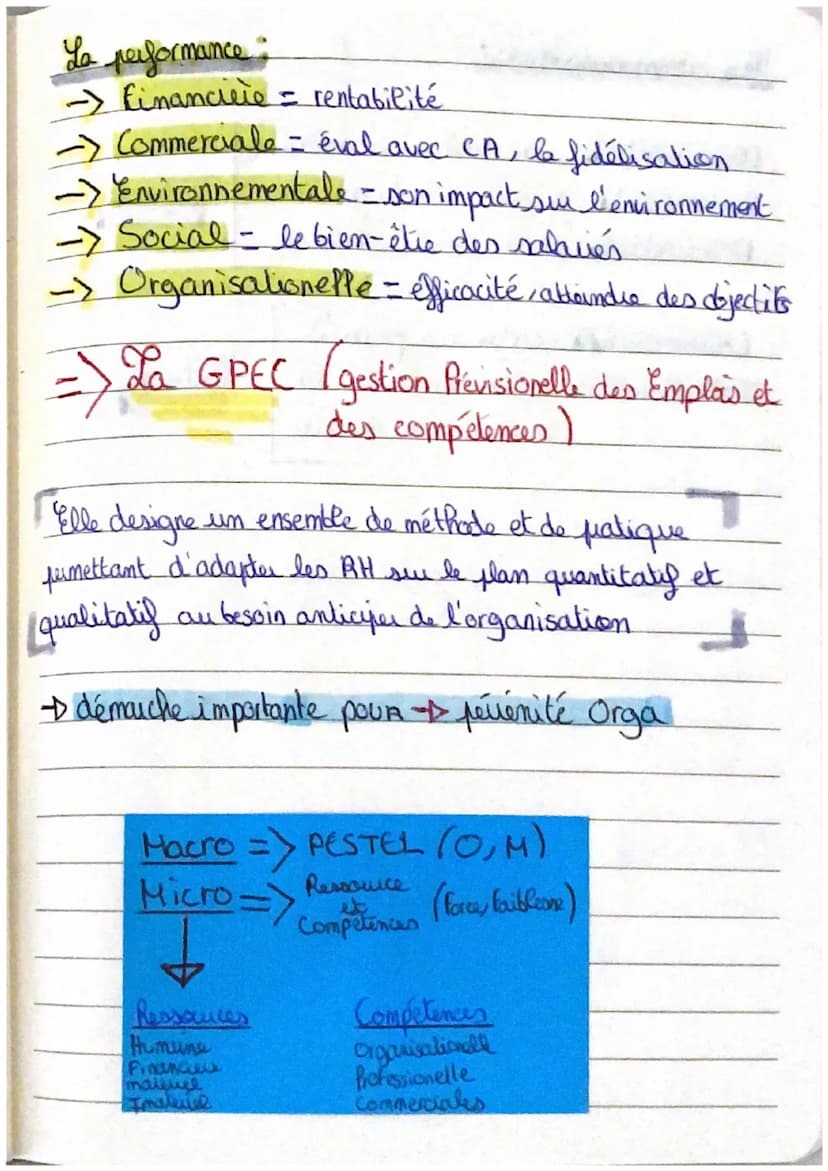 La performance :
-> Financière = rentabilité
-> Commerciale = éval avec CA, la fidélisation
-> Environnementale = son impact sur l'environnement
-> Social = le bien-être des salariés
-> Organisationelle = efficacité, atteindre des objectifs
=> La GPEC (gestion Prévisionelle des Emplois et
des compétences)
Elle designe un ensemble de méthode et de pratique
permettant d'adapter les RH sur le plan quantitatif et
qualitatif au besoin anticiper de l'organisation
-> démarche importante pour -> pérénité Orga
Macro => PESTEL (O, M)
Micro => Ressource et Compétences (Force, faiblesse)
Ressources Compétences
Humaine Organisationelle
Financière Professionelle
materiel Commerciales
Imateriel